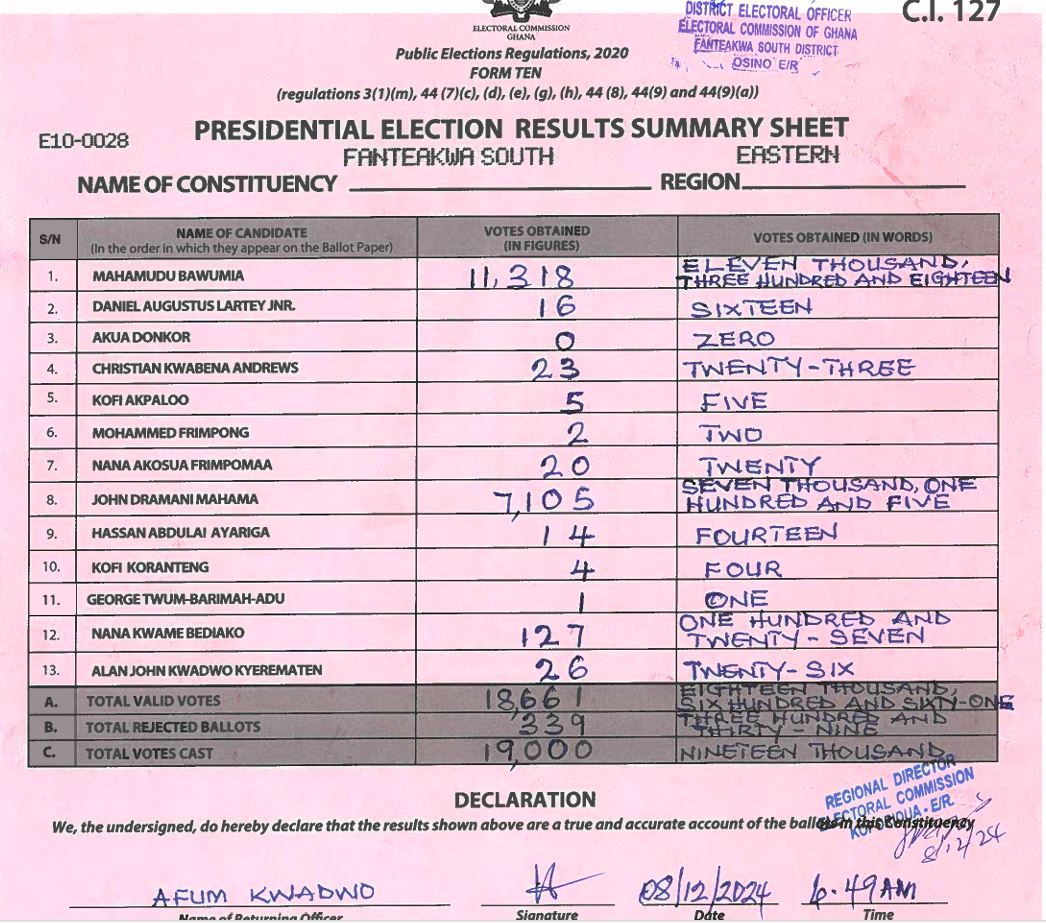 C.I. 127
DISTRICT ELECTORAL OFFICER
ELECTORAL COMMISSION OF GHANA
FANTEAKWA SOUTH DISTRICT
OSINO E/R
ELECTORAL COMMISSION
GHANA
Public Elections Regulations, 2020
FORM TEN
(regulations 3(1)(m), 44 (7)(c), (d), (e), (g), (h), 44 (8), 44(9) and 44(9)(a))
E10-0028
PRESIDENTIAL ELECTION RESULTS SUMMARY SHEET
FANTEAKWA SOUTH EASTERN
NAME OF CONSTITUENCY REGION
S/N NAME OF CANDIDATE (In the order in which they appear on the Ballot Paper) VOTES OBTAINED (IN FIGURES) VOTES OBTAINED (IN WORDS)
1. MAHAMUDU BAWUMIA 11,318 ELEVEN THOUSAND, THREE HUNDRED AND EIGHTEEN
2. DANIEL AUGUSTUS LARTEY JNR. 16 SIXTEEN
3. AKUA DONKOR 0 ZERO
4. CHRISTIAN KWABENA ANDREWS 23 TWENTY-THREE
5. KOFI AKPALOO 5 FIVE
6. MOHAMMED FRIMPONG 2 TWO
7. NANA AKOSUA FRIMPOMAA 20 TWENTY
8. JOHN DRAMANI MAHAMA 7,105 SEVEN THOUSAND, ONE HUNDRED AND FIVE
9. HASSAN ABDULAI AYARIGA 14 FOURTEEN
10. KOFI KORANTENG 4 FOUR
11. GEORGE TWUM-BARIMAH-ADU 1 ONE
12. NANA KWAME BEDIAKO 127 ONE HUNDRED AND TWENTY-SEVEN
13. ALAN JOHN KWADWO KYEREMATEN 26 TWENTY-SIX
A. TOTAL VALID VOTES 18,661 EIGHTEEN THOUSAND, SIX HUNDRED AND SIXTY-ONE
B. TOTAL REJECTED BALLOTS 339 THREE HUNDRED AND THIRTY-NINE
C. TOTAL VOTES CAST 19,000 NINETEEN THOUSAND
REGIONAL DIRECTOR
ELECTORAL COMMISSION
KOFORIDUA - E/R.
8/12/24
DECLARATION
We, the undersigned, do hereby declare that the results shown above are a true and accurate account of the ballots in this Constituency
AFUM KWADWO 08/12/2024 6:49AM
Name of Returning Officer Signature Date Time